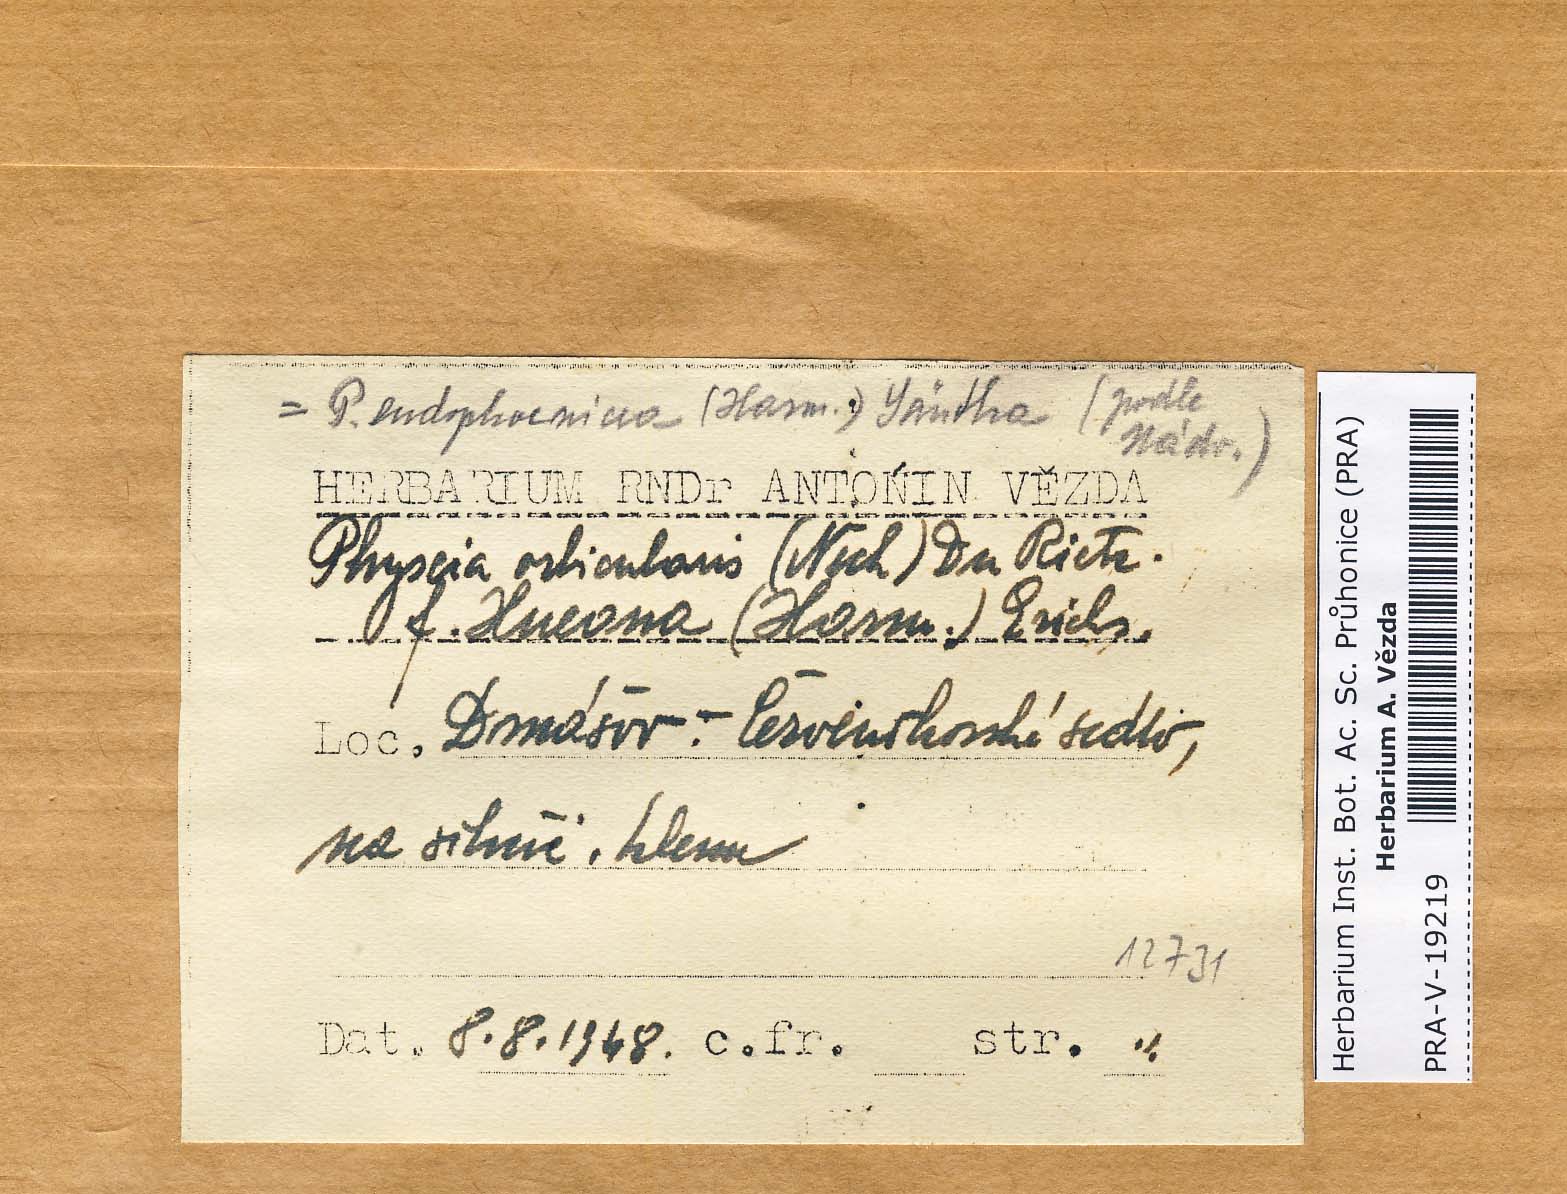 = P. endophoenicea (Harm.) Sántha (podle
Nádv.)
HERBARIUM RNDr ANTONÍN VĚZDA
Physcia orbicularis (Neck) Du Rietz.
f. Hueana (Harm.) Erichs.
Loc. Domášov - Červenohorské sedlo,
na silnič. klenu
12731
Dat. 8.8.1948. c.fr. str. "
Herbarium Inst. Bot. Ac. Sc. Průhonice (PRA)
Herbarium A. Vězda
PRA-V-19219